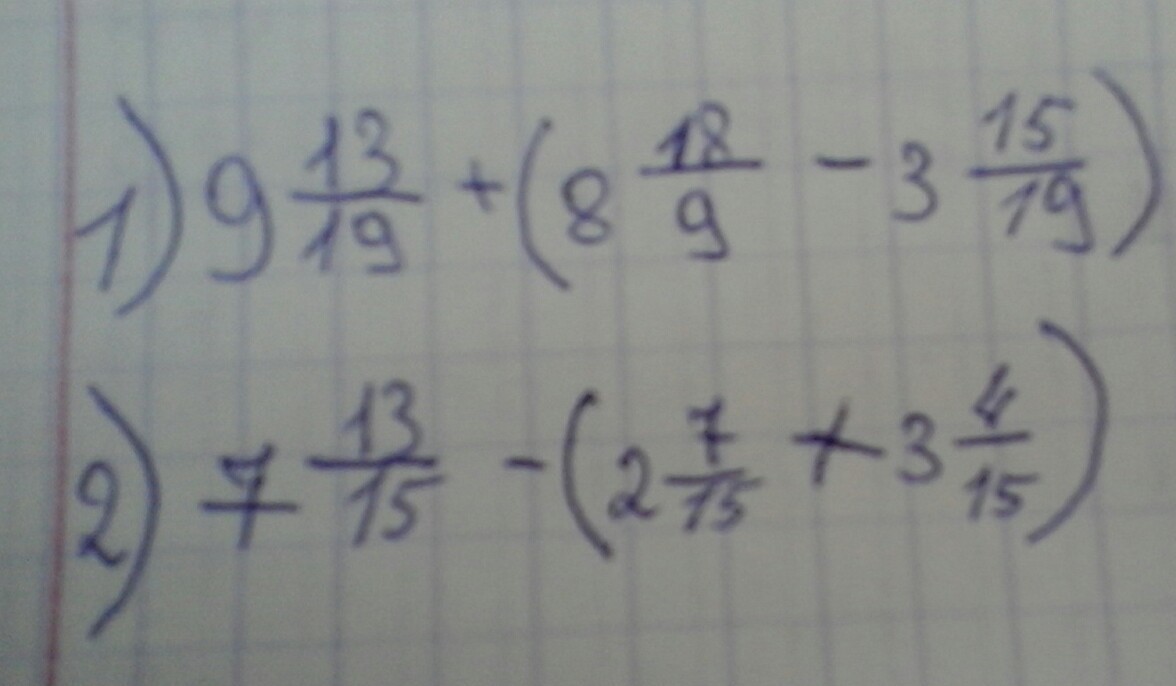 1) 9 13/19 + (8 18/9 - 3 15/19)
2) 7 13/15 - (2 7/15 + 3 4/15)